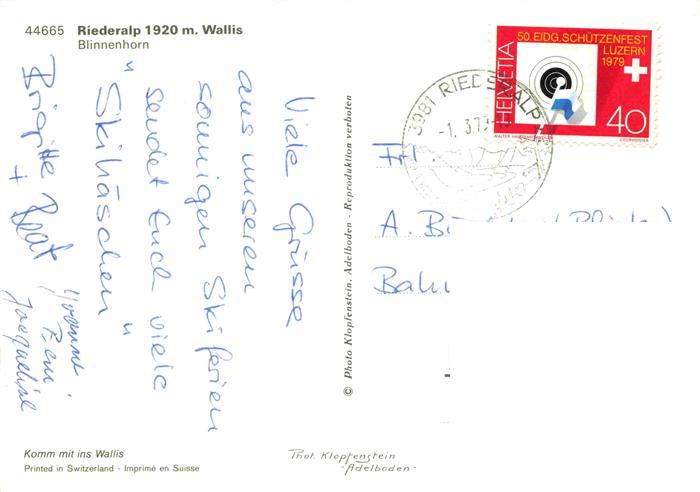 44665 Riederalp 1920 m. Wallis
Blinnenhorn
Viele Grüsse
aus unseren
sonnigen Skiferien
sendet Euch viele
"Skihäschen"
Brigitte + Beat
Yvonne
Remi
Jacqueline
Komm mit ins Wallis
Printed in Switzerland - Imprimé en Suisse
© Photo Klopfenstein, Adelboden - Reproduktion verboten
Phot. Klopfenstein
-Adelboden-
HELVETIA
50. EIDG. SCHÜTZENFEST
LUZERN
1979
40
3981 RIEDERALP
-1. 3.79
A.